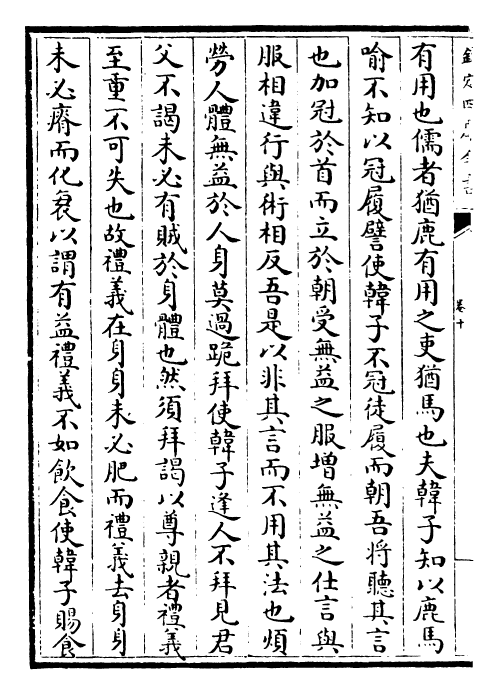 欽定四庫全書
卷十
有用也儒者猶鹿有用之吏猶馬也夫韓子知以鹿馬
喻不知以冠履譬使韓子不冠徒履而朝吾將聽其言
也加冠於首而立於朝受無益之服增無益之仕言與
服相違行與術相反吾是以非其言而不用其法也煩
勞人體無益於人身莫過跪拜使韓子逢人不拜見君
父不謁未必有賊於身體也然須拜謁以尊親者禮義
至重不可失也故禮義在身身未必肥而禮義去身身
未必瘠而化衰以謂有益禮義不如飲食使韓子賜食